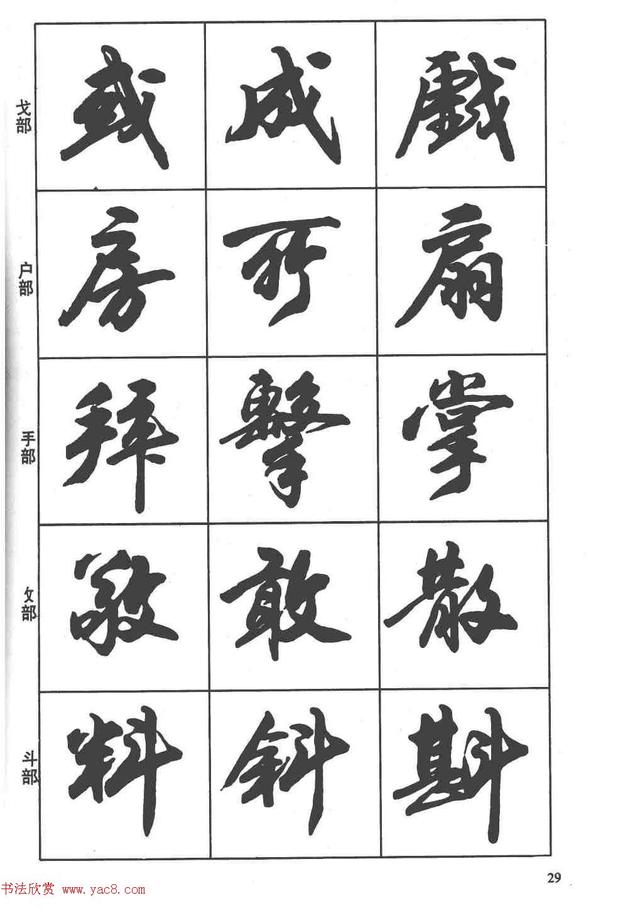 戈部 或 成 戲
户部 房 所 扇
手部 拜 擊 掌
攵部 敬 敢 散
斗部 料 斜 斟
29
书法欣赏 www.yac8.com